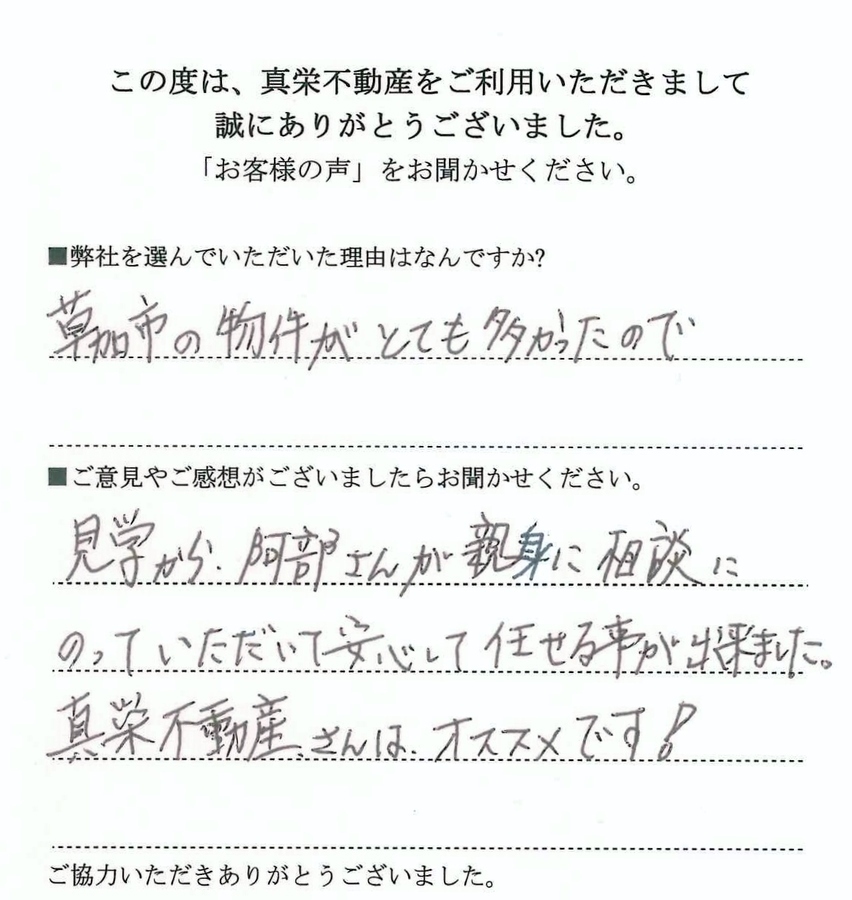 この度は、真栄不動産をご利用いただきまして
誠にありがとうございました。
「お客様の声」をお聞かせください。
■弊社を選んでいただいた理由はなんですか?
草加市の物件がとても多かったので
■ご意見やご感想がございましたらお聞かせください。
見学から、阿部さんが親身に相談に
のっていただいて安心して任せる事が出来ました。
真栄不動産さんは、オススメです!
ご協力いただきありがとうございました。